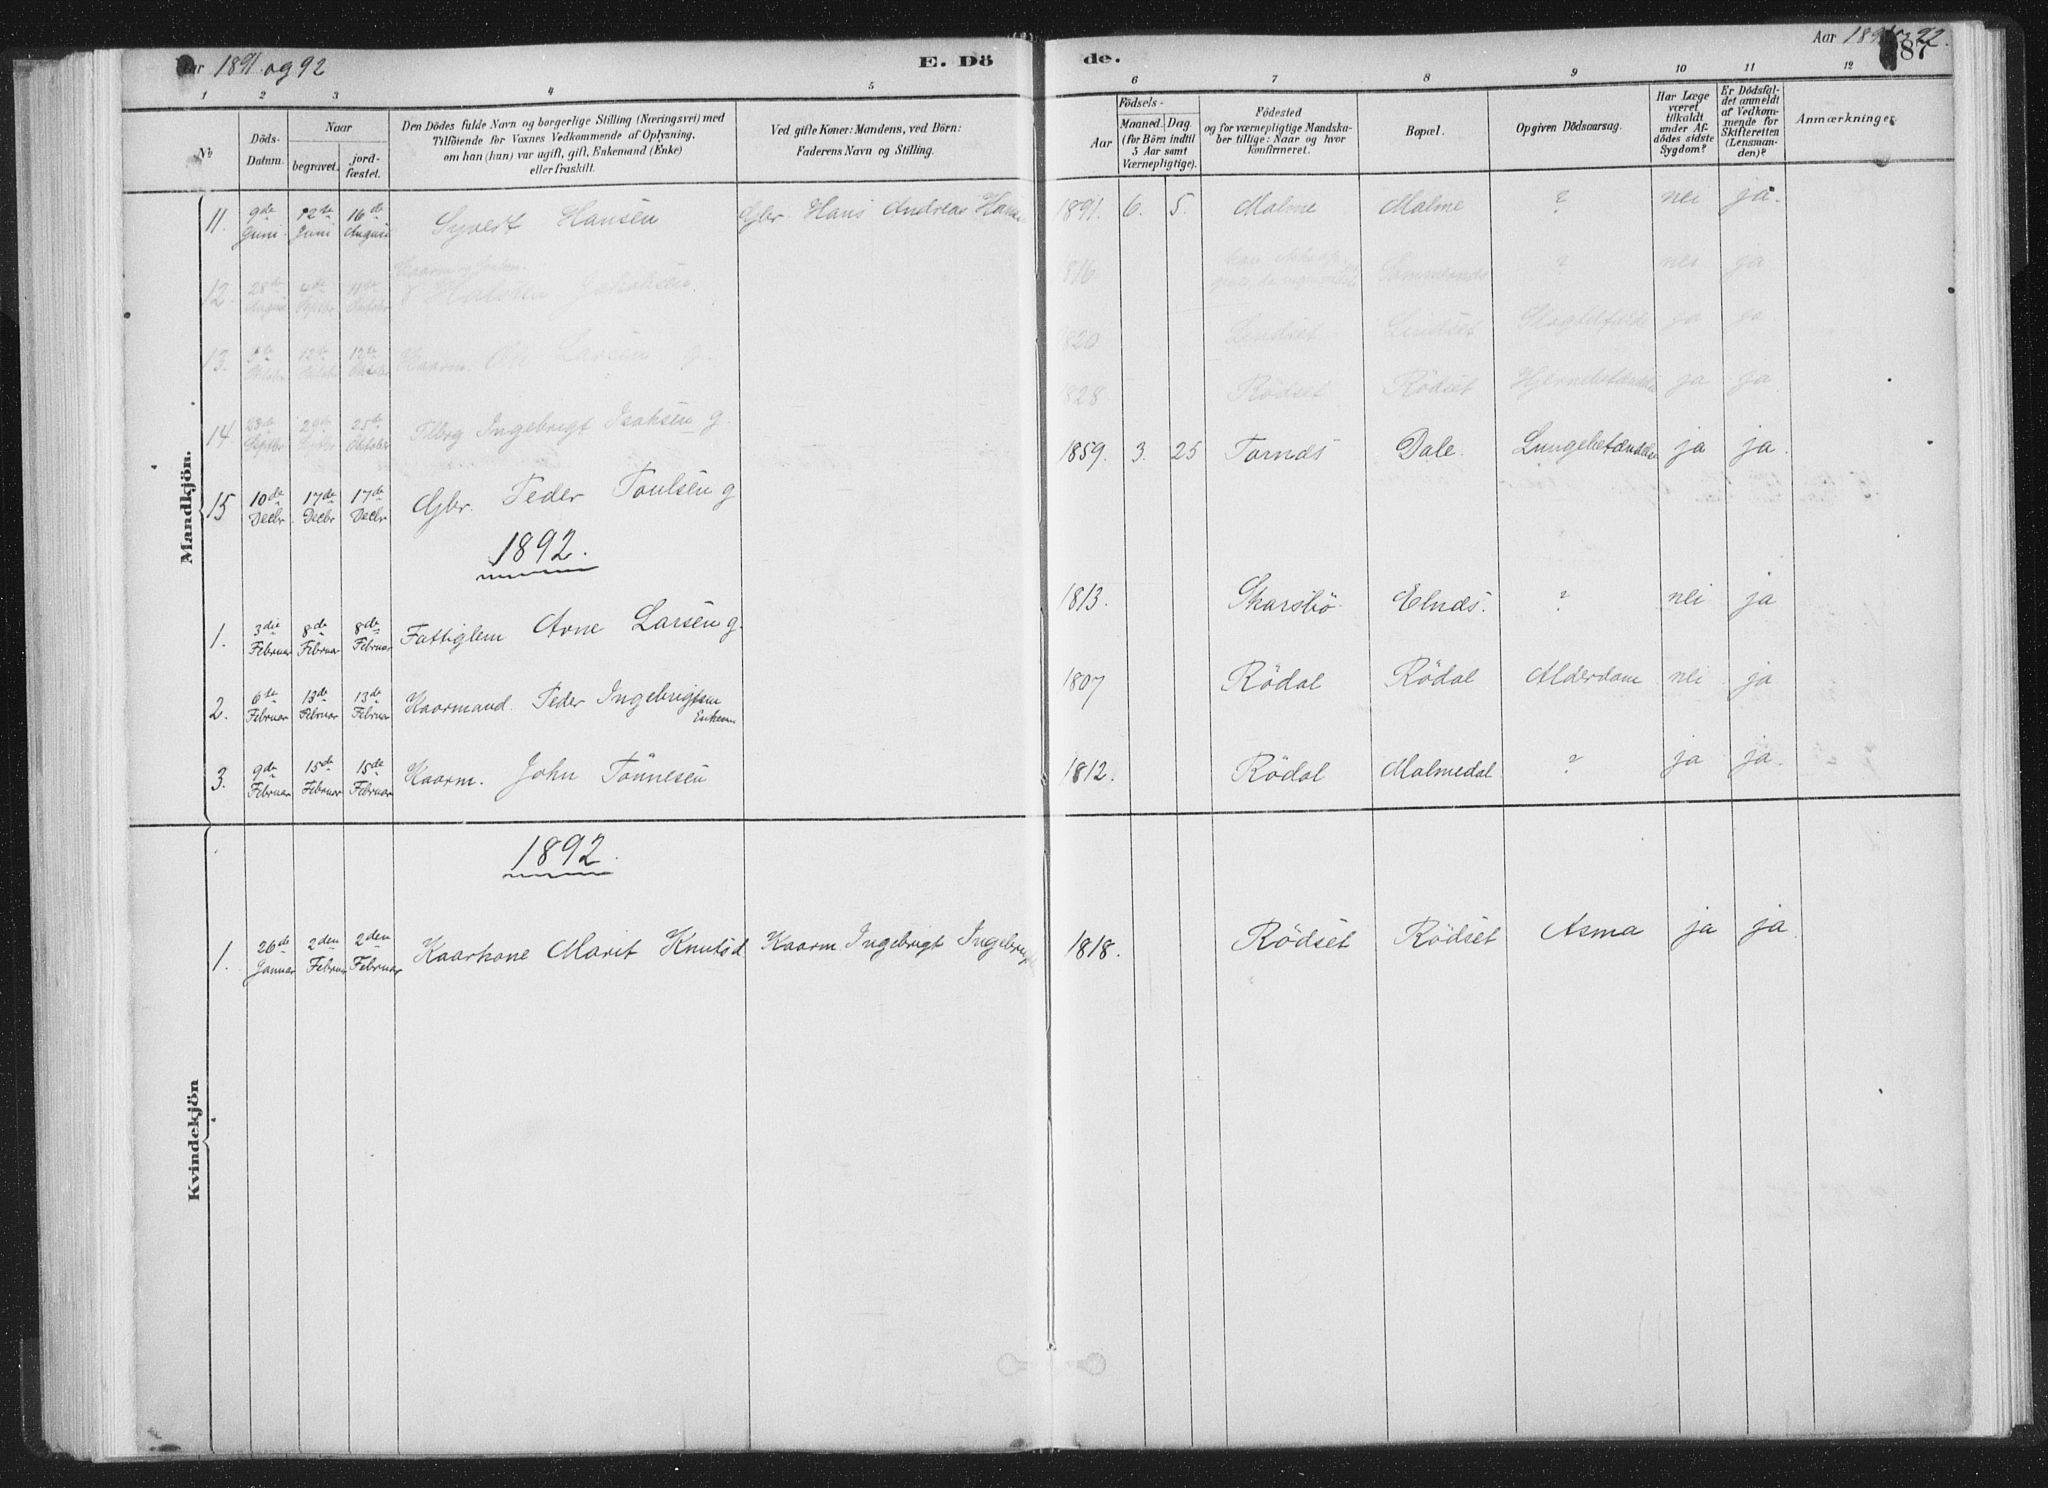 Aar 1891 og 92
E. Dö
de.
Aar 1891 og 92.
187
1 2 3 4 5
6 7 8 9 10 11 12
No
Döds-
Datum.
Naar
begravet.
jord-
fæstet.
Den Dödes fulde Navn og borgerlige Stilling (Næringsvei) med
Tilföiende for Voxnes Vedkommende af Oplysning,
om han (hun) var ugift, gift, Enkemand (Enke)
eller fraskilt.
Ved gifte Koner: Mandens, ved Börn:
Faderens Navn og Stilling.
Födsels-
Aar
Maaned. Dag
(for Börn indtil
5 Aar samt
Værnepligtige).
Födested
og for værnepligtige Mandska-
ber tillige: Naar og hvor
konfirmeret.
Bopæl.
Opgiven Dödsaarsag.
Har Læge
været
tilkaldt
under Af-
dödes sidste
Sygdom?
Er Dödsfal-
det anmeldt
af Vedkom-
mende for
Skifteretten
(Lensman-
den)?
Anmærkninger.
Mandkjön.
11. 9de Juni. 12te Juni 16de August Syvert Hansen Gbr. Hans Andreas Hansen 1891. 6. 5. Malme Malme ? nei ja.
12. 28de August 4de Septbr 11te Oktober Kaarm Jakobsen 1816 ? nei ja
13. 5te Oktober 12te Oktober 12te Oktober Kaarm. Ole Larsen g. 1820 Lindset Lindset ja ja
14 23de Septbr 29de Septbr 25de Oktober Ingebrigt Isaksen g. 1828 Rödset Rödset Hjernebetændelse ja ja
15 10de Decbr. 17de Decbr 17de Decbr Gbr. Peder Poulsen g 1859. 3. 25 Tornæs Dale. Lungebetændelse ja ja.
1892.
1. 3die Februar 8de Februar 8de Februar Fattiglem Arne Larsen g. 1813. Skarsbö Elnæs. ? nei ja
2. 6te Februar 13de Februar 13de Februar Kaarmand. Peder Ingebrigtsen Enkem 1807 Rödal Rödal Alderdom nei ja
3. 9de Februar 15de Februar 15de Februar Kaarm. John Tönnesen 1812. Rödal Malmedal. ? ja ja.
Kvindekjön
1892.
1. 26de Januar 2den Februar 2den Februar Kaarkone Marit Knutsd Kaarm. Ingebrigt 1818. Rödset Rödset Asma ja ja.